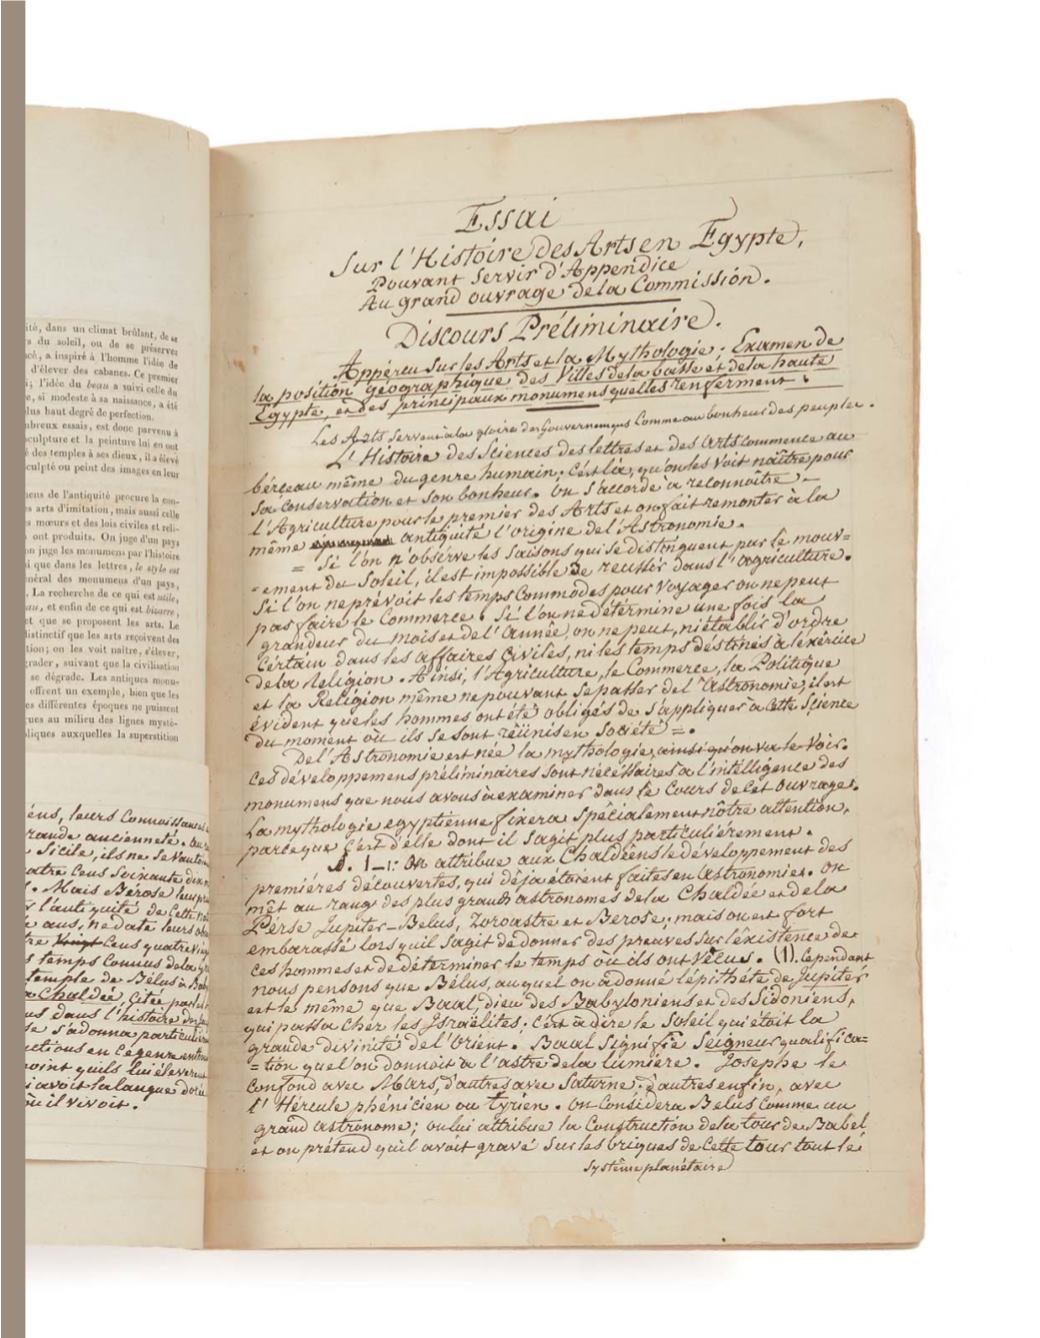 ité, dans un climat brûlant, de se
s du soleil, ou de se préserver
cé, a inspiré à l'homme l'idée de
d'élever des cabanes. Ce premier
; l'idée du beau a suivi celle du
e, si modeste à sa naissance, a été
lus haut degré de perfection.
mbreux essais, est donc parvenu à
sculpture et la peinture lui en ont
é des temples à ses dieux, il a élevé
culpté ou peint des images en leur
ens de l'antiquité procure la con-
s arts d'imitation, mais aussi celle
s mœurs et des lois civiles et reli-
ont produits. On juge d'un pays
n juge les monumens par l'histoire
i que dans les lettres, le style est
néral des monumens d'un pays,
. La recherche de ce qui est utile,
au, et enfin de ce qui est bizarre,
et que se proposent les arts. Le
distinctif que les arts reçoivent des
tion; on les voit naître, s'élever,
grader, suivant que la civilisation
se dégrade. Les antiques monu-
offrent un exemple, bien que les
es différentes époques ne puissent
ues au milieu des lignes mysté-
liques auxquelles la superstition
éens, leurs Connoissances
rande ancienneté.
Sicile, ils ne se Vantoient
atre Cens Soixante dix
. Mais Bérose
l'antiquité de Cette
aus, ne date leurs obs
Vingt Cens quatre Vingt
s temps Connus de la
temple de Bélus à Bab
a Chaldée, Citée par
us dans l'histoire
se s'adonna particuliè
uctions en ce genre
point qu'ils lui éleverent
avoit la langue dorée
où il vivoit.
Essai
Sur l'Histoire des Arts en Egypte,
Pouvant Servir d'Appendice
Au grand ouvrage de la Commission.
Discours Préliminaire.
Apperçu sur les Arts et la Mythologie; Examen de
la position géographique des Villes de la basse et de la haute
Egypte, et des principaux monumens quelles renferment.
Les Arts servent à la gloire des Gouvernemens Comme au bonheur des peuples.
L'Histoire des Sciences des lettres et des Arts commence au
bérceau même du genre humain; C'est là, qu'on les voit naître pour
sa conservation et son bonheur. On s'accorde à reconnoître
l'Agriculture pour le premier des Arts et on fait remonter à la
même antiquité l'origine de l'Astronomie.
= Si l'on n'observe les Saisons qui se distinguent par le mouv=
=ement du Soleil, il est impossible de reussir dans l'agriculture.
Si l'on ne prévoit les temps Commodes pour Voyager on ne peut
pas faire le Commerce. Si l'on ne détérmine une fois la
grandeur du mois et de l'année, on ne peut, ni établir d'ordre
Certain dans les affaires Civiles, ni les temps déstinés à l'éxércice
de la Religion. Ainsi, l'Agriculture, le Commerce, la Politique
et la Religion même ne pouvant se passer de l'Astronomie; il est
évident que les hommes ont été obligés de s'appliquer à Cette Science
du moment où ils se sont réunis en Société =.
De l'Astronomie est née la mythologie, ainsi qu'on va le Voir.
Ces dévelopemens préliminaires sont nécéssaires à l'intelligence des
monumens que nous avons à examiner dans le Cours de Cet ouvrage.
La mythologie egyptienne fixera spécialement nôtre attention,
parceque C'est d'elle dont il s'agit plus particuliérement.
§. 1er: On attribue aux Chaldéens le dévelopement des
premiéres découvertes, qui déja étoient faites en Astronomie. On
mêt au rang des plus grands astronomes de la Chaldée et de la
Pérse Jupiter-Belus, Zoroastre et Bérose; mais on est fort
embarassé lorsqu'il s'agit de donner des preuves sur l'éxistence de
ces hommes et de déterminer le temps où ils ont vécus. (1). Cependant
nous pensons que Bélus, auquel on a donné l'épithéte de Jupiter
est le même que Baal, dieu des Babyloniens et des Sidoniens,
qui passa chez les Israëlites; C'ést à dire le Soleil qui étoit la
grande divinité de l'orient. Baal Signifie Seigneur qualifica=
=tion que l'on donnoit à l'astre de la lumière. Josephe le
confond avec Mars, d'autres avec Saturne; d'autres enfin, avec
l'Hércule phénicien ou tyrien. On Considéra Belus Comme un
grand astronome; on lui attribue la Construction de la tour de Babel
et on prétend qu'il avoit gravé sur les briques de Cette tour tout lé
Systême planétaire